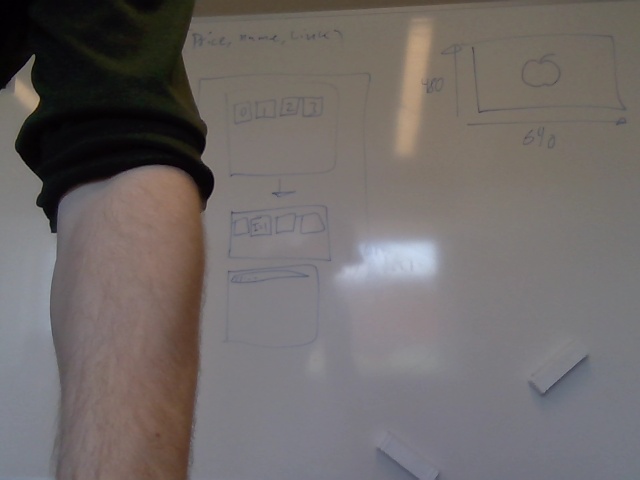 Price, name, Link?
0 1 2 3
480
640